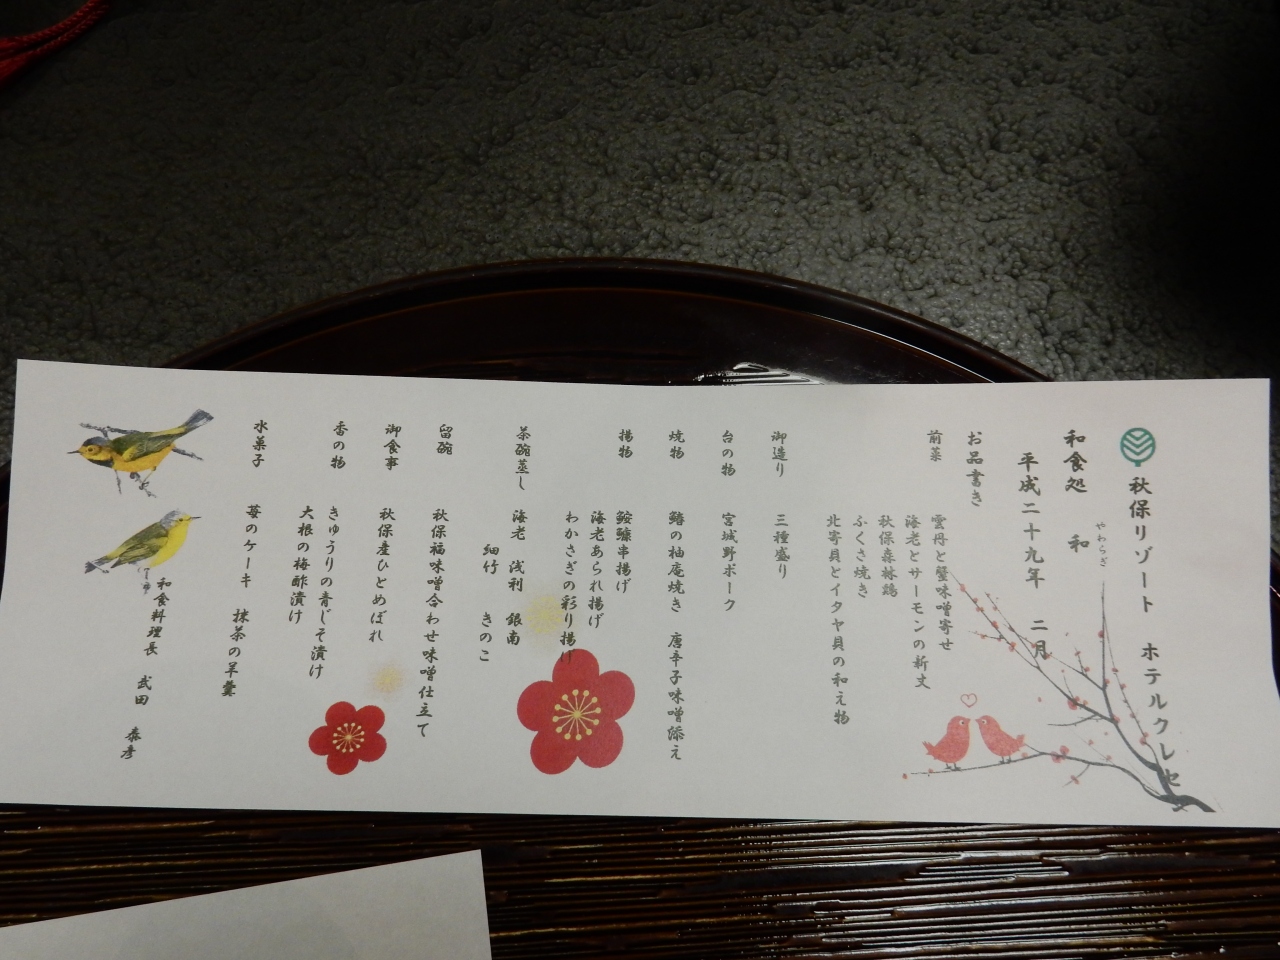 秋保リゾート　ホテルクレセ
和食処　和
やわらぎ
平成二十九年　二月
お品書き
前菜　雲丹と蟹味噌寄せ
海老とサーモンの新丈
秋保森林鶏
ふくさ焼き
北寄貝とイタヤ貝の和え物
御造り　三種盛り
台の物　宮城野ポーク
焼物　鰆の柚庵焼き　唐辛子味噌添え
揚物　鮟鱇串揚げ
海老あられ揚げ
わかさぎの彩り揚げ
茶碗蒸し　海老　浅利　銀杏
細竹　きのこ
留碗　秋保福味噌合わせ味噌仕立て
御食事　秋保産ひとめぼれ
香の物　きゅうりの青じそ漬け
大根の梅酢漬け
水菓子　苺のケーキ　抹茶の羊羹
和食料理長　武田　泰彦